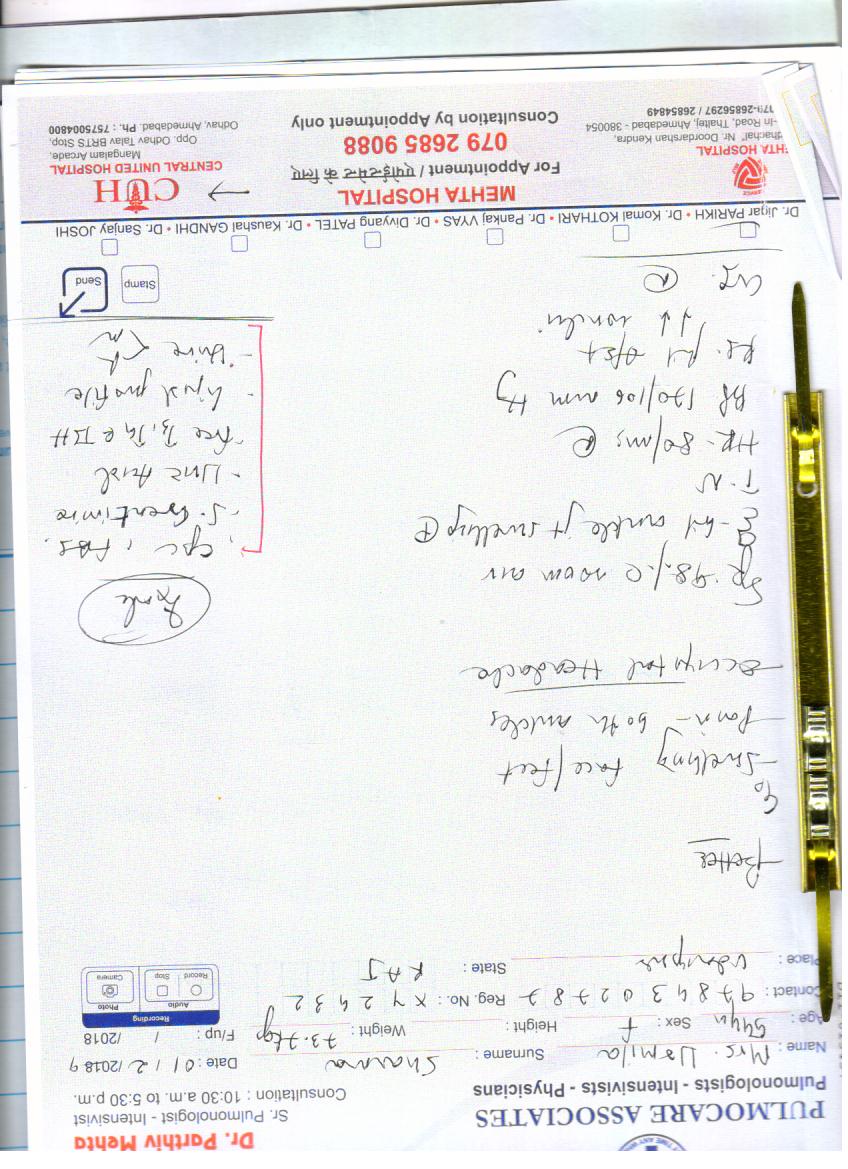 PULMOCARE ASSOCIATES
Pulmonologists - Intensivists - Physicians
Dr. Parthiv Mehta
Sr. Pulmonologist - Intensivist
Consultation : 10:30 a.m. to 5:30 p.m.
Name : Mrs. Urmila Surname : Sharma Date : 01 / 2 /2018 9
Age : 54yrs Sex : f Height : Weight : 73.7kg F/up : / /2018
Contact : 9784302787 Reg. No. : X 7 2432
Place : Udaipur State : RAJ
Recording
Audio Photo
Record Stop Camera
Better
c/o
- Swelling face/feet
- Pain - both ankles
- Occipital Headache
Sp. 98% @ room air
- b/l ankle jt swelling (+)
T-N
HR - 80/min; R
BP 170/106 mm Hg
RS.
Adv
CBC, FBS
- S. Creatinine
- Uric Acid
- free T3, T4 & TSH
- Lipid profile
- Urine
Stamp
Send
Dr. Jigar PARIKH • Dr. Komal KOTHARI • Dr. Pankaj VYAS • Dr. Divyang PATEL • Dr. Kaushal GANDHI • Dr. Sanjay JOSHI
HTA HOSPITAL
thachal" Nr. Doordarshan Kendra,
-in Road, Thaltej, Ahmedabad - 380054
079-26856297 / 26854849
MEHTA HOSPITAL
For Appointment / एपोईन्टमेन्ट के लिए
079 2685 9088
Consultation by Appointment only
CUH
CENTRAL UNITED HOSPITAL
Mangalam Arcade,
Opp. Odhav Talav BRTS Stop,
Odhav, Ahmedabad. Ph. : 7575004800